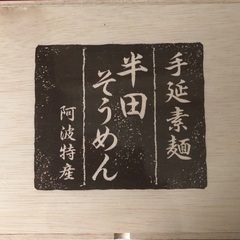 手延素麺
半田
そうめん
阿波特産